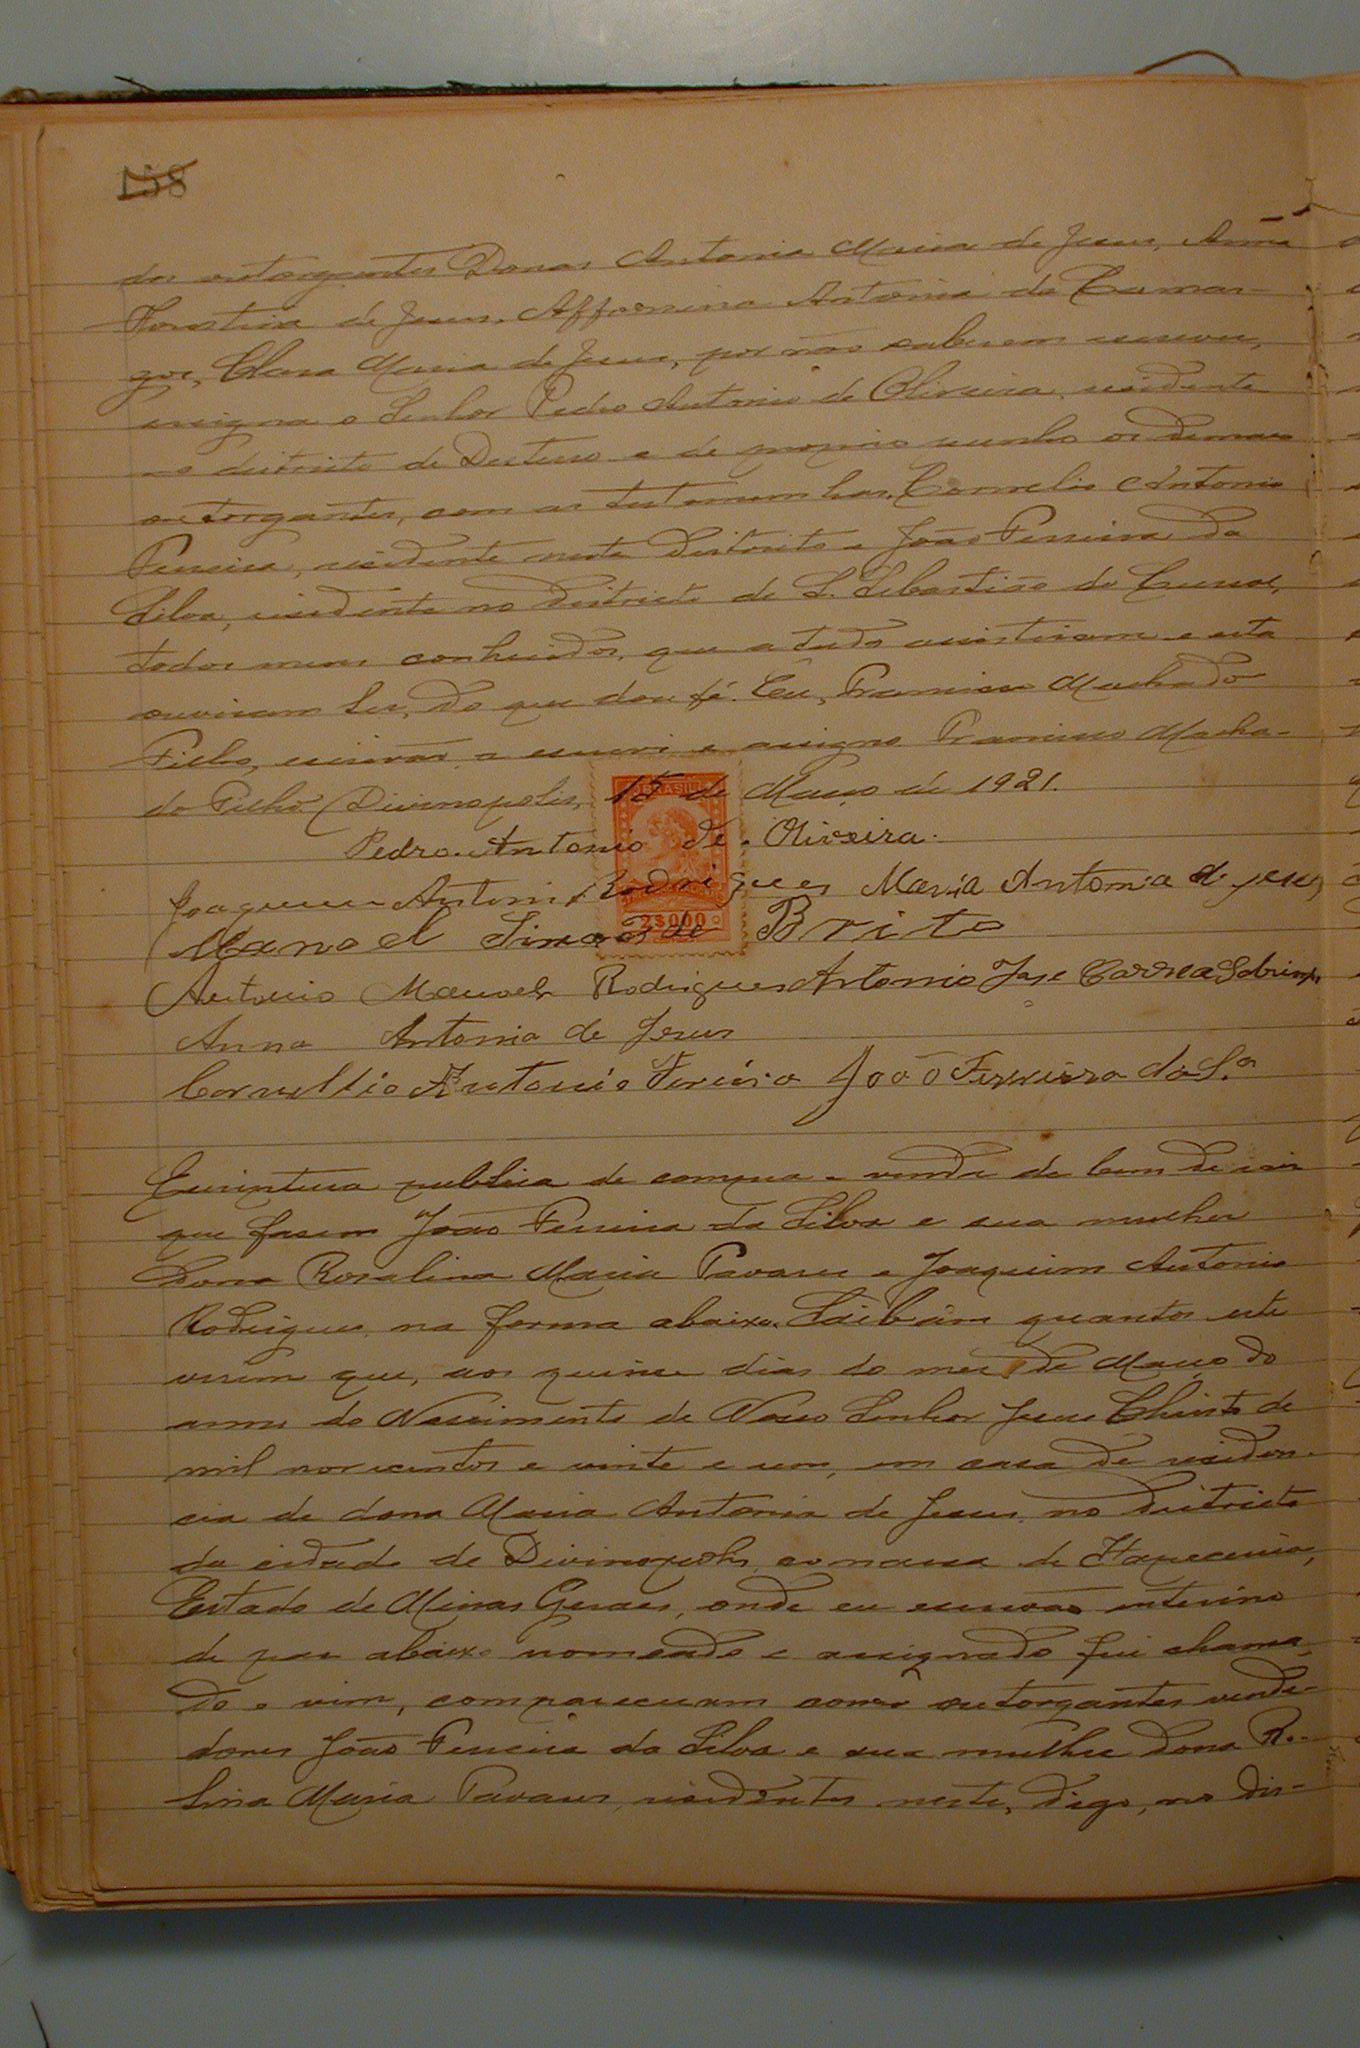 158
dos outorgantes Donas Antonia Maria de Jesus, Anna
de Jesus, Afforsina Antonia de Camar-
gos, Clara Maria de Jesus, por não saberem escrever,
assigna o Senhor Pedro Antonio de Oliveira, residente
no districto de Desterro e de proprio punho os demais
outorgantes, com as testemunhas, Cornelio Antonio
Pereira, residente neste districto e João Ferreira da
Silva, residente no districto de S. Sebastião do Curral,
todos meus conhecidos, que a tudo assistiram e esta
ouviram ler, do que dou fé. Eu, Francisco Machado
Filho, escrivão, a escrevi e assigno Francisco Macha-
do Filho Divinopolis, 15 de Março de 1921.
BRASIL
2$000
Pedro Antonio de Oliveira.
Joaquim Antonio Rodrigues Maria Antonia de Jesus
Manoel Simão de Brito
Antonio Manoel Rodrigues Antonio Jose Correa Sobrinho
Anna Antonia de Jesus
Cornellio Antonio Pereira João Ferreira da S.a
Escriptura publica de compra e venda de bens de raiz
que fasem João Ferreira da Silva e sua mulher
Dona Rosalina Maria Tavares e Joaquim Antonio
Rodrigues, na forma abaixo. Saibam quantos este
virem que, aos quinse dias do mez de Março do
anno do Nascimento de Nosso Senhor Jesus Christo de
mil novecentos e vinte e um, em casa de residen-
cia de dona Maria Antonia de Jesus, no districto
da cidade de Divinopolis, comarca de Itapecerica,
Estado de Minas Geraes, onde eu escrivão interino
de paz abaixo nomeado e assignado fui chama-
do e vim, compareceram como outorgantes vende-
dores João Ferreira da Silva e sua mulher Dona Ro-
lina Maria Tavares, residentes neste, digo, no dis-